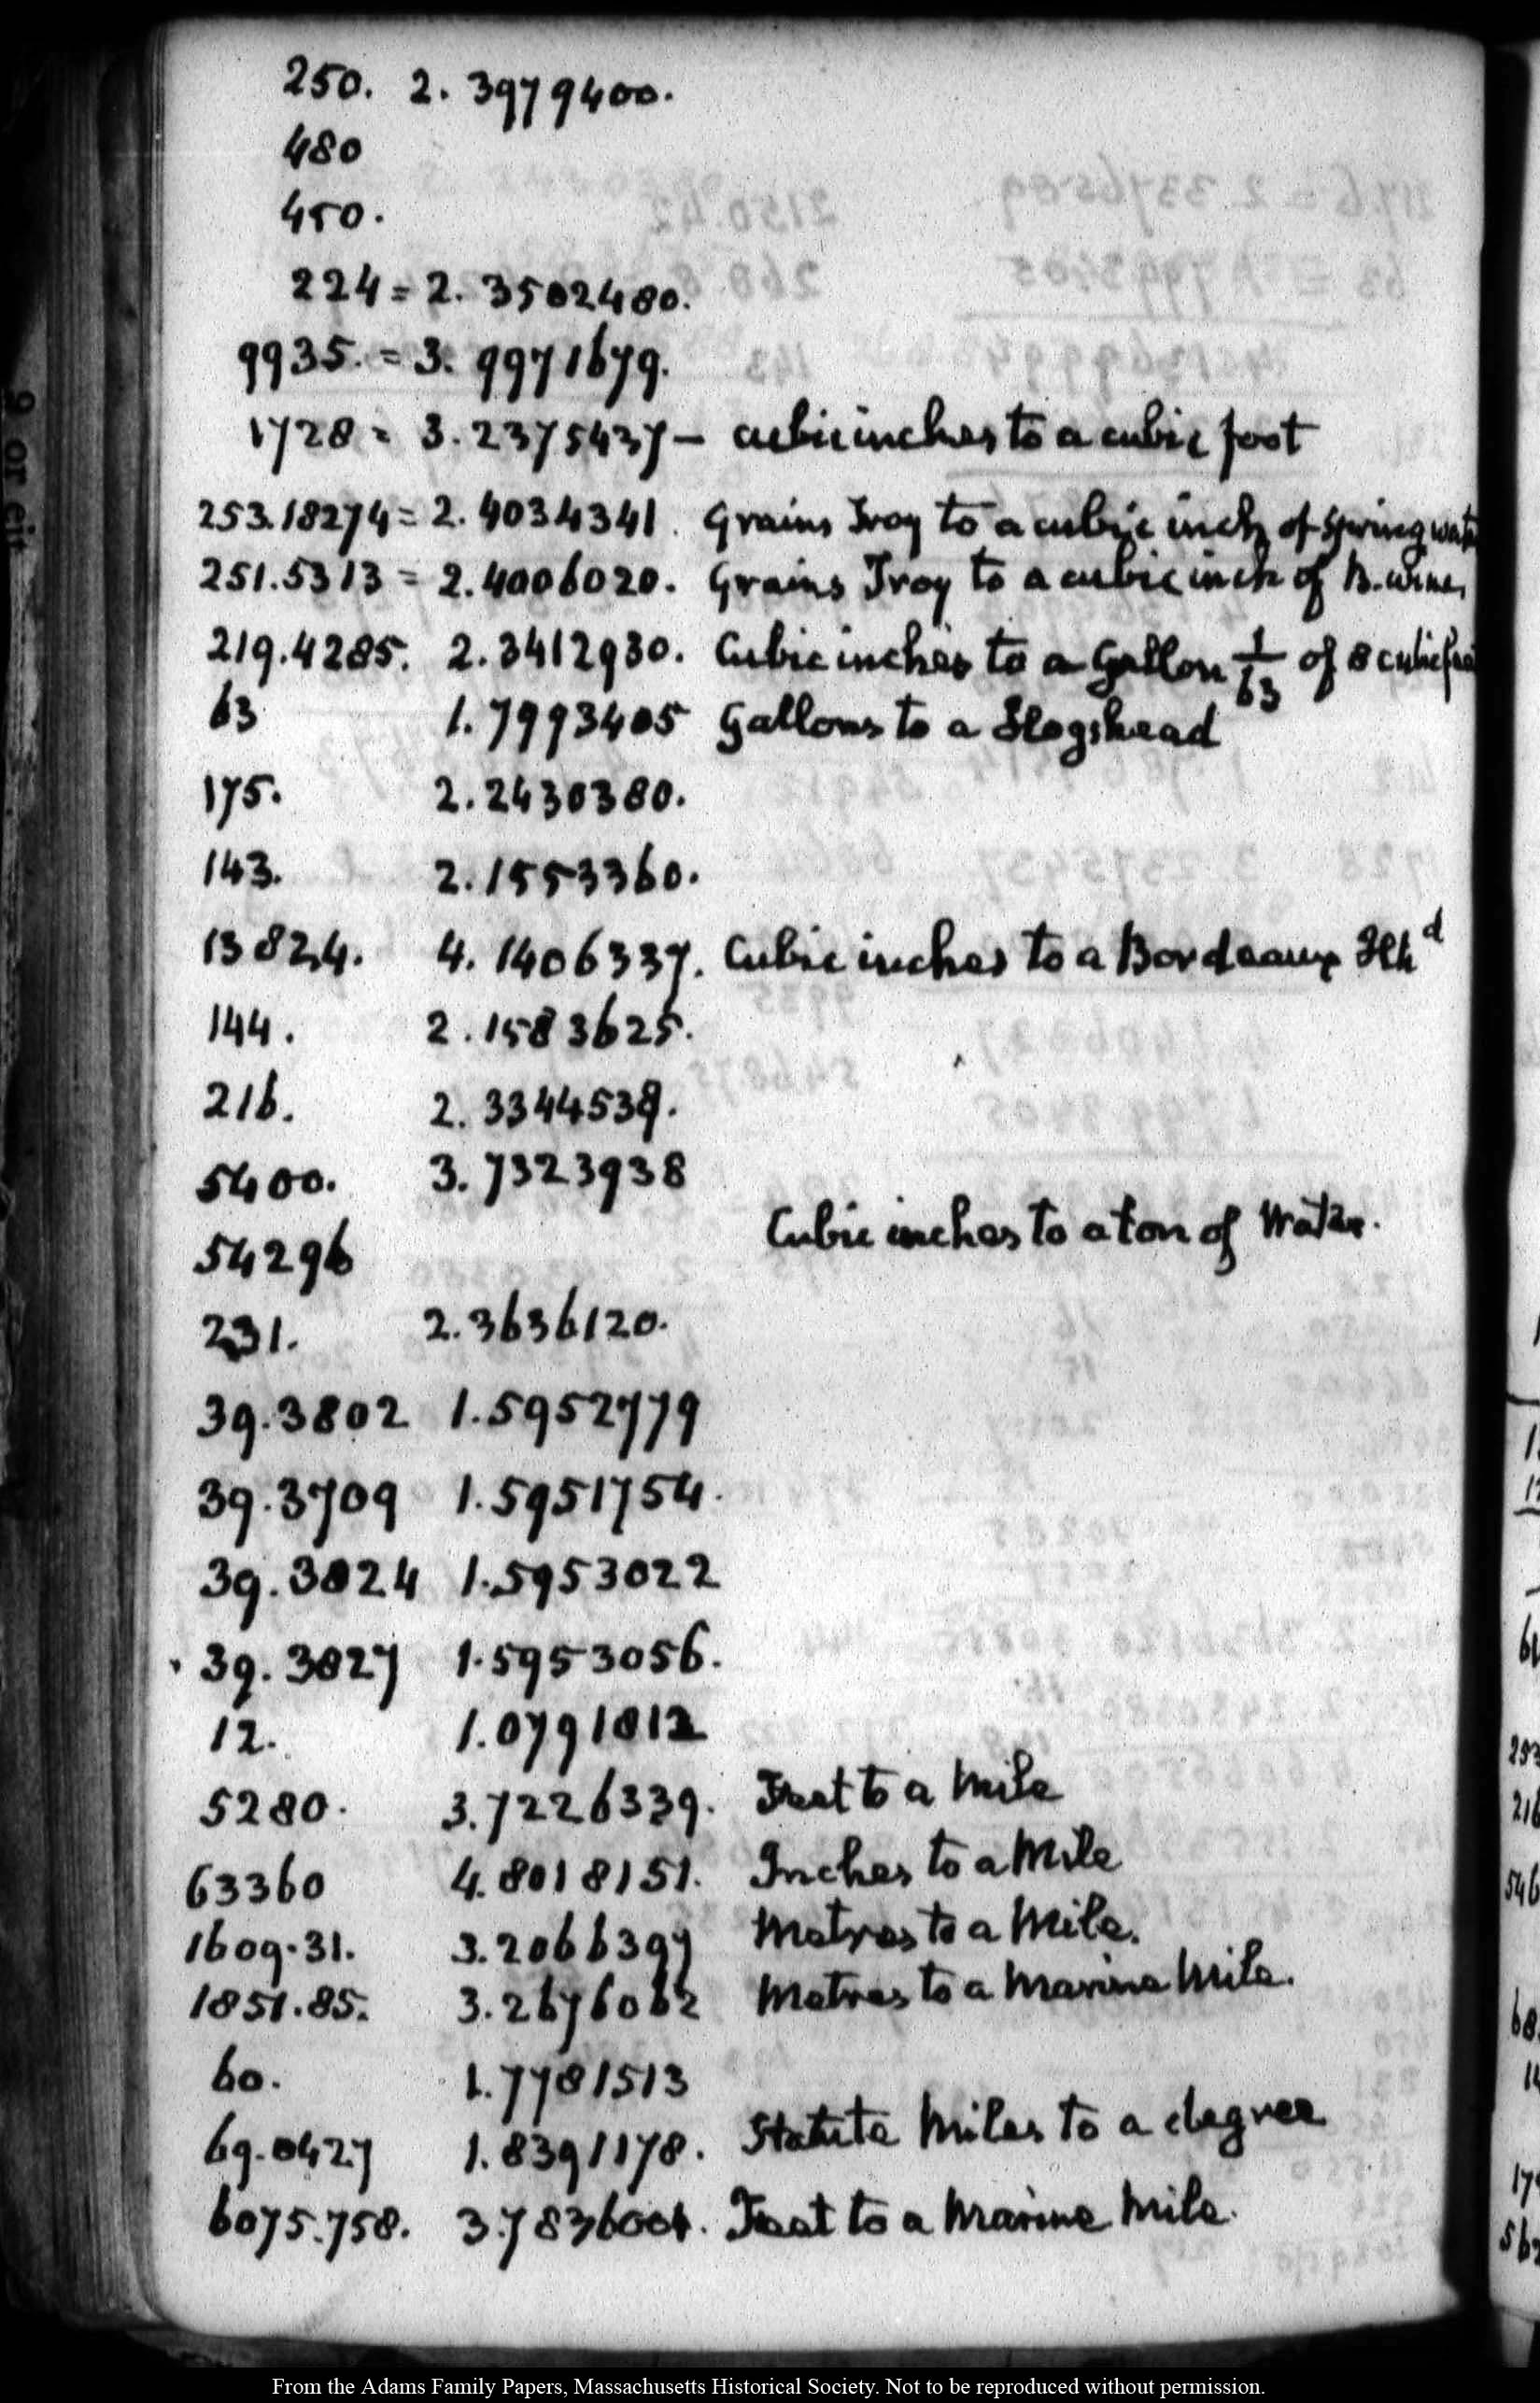 250. 2. 3979400.
480
450.
224 = 2. 3502480.
9935. = 3. 9971679.
1728 = 3. 2375437 — cubic inches to a cubic foot
253.18274 = 2. 4034341. Grains Troy to a cubic inch of Spring wat
251.5313 = 2. 4006020. Grains Troy to a cubic inch of B. wine,
219.4285. 2. 3412930. Cubic inches to a Gallon 1/63 of 8 cubic fee
63 1. 7993405 Gallons to a Hogshead
175. 2. 2430380.
143. 2. 1553360.
13824. 4. 1406337. Cubic inches to a Bordeaux Hhd
144. 2. 1583625.
216. 2. 3344538.
5400. 3. 7323938
54296 Cubic inches to a ton of Water.
231. 2. 3636120.
39.3802 1.5952779
39.3709 1.5951754.
39.3824 1.5953022
39.3827 1.5953056.
12. 1.0791812
5280. 3.7226339. Feet to a Mile
63360 4.8018151. Inches to a Mile
1609.31. 3.2066397 Metres to a Mile.
1851.85. 3.2676062 Metres to a Marine Mile.
60. 1.7781513
69.0427 1.8391178. Statute Miles to a degree
6075.758. 3.7836001. Feet to a Marine Mile.
From the Adams Family Papers, Massachusetts Historical Society. Not to be reproduced without permission.